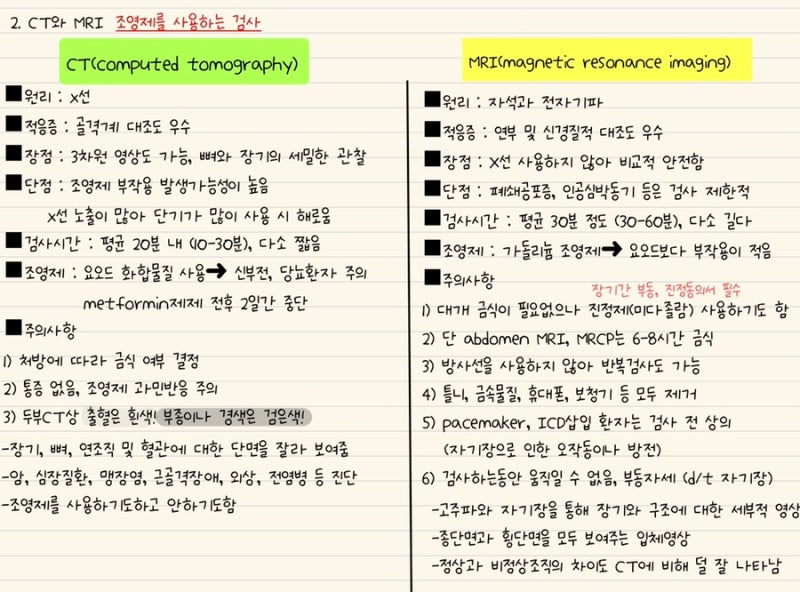 2. CT와 MRI 조영제를 사용하는 검사
CT(computed tomography)
■원리 : X선
■적응증 : 골격계 대조도 우수
■장점 : 3차원 영상도 가능, 뼈와 장기의 세밀한 관찰
■단점 : 조영제 부작용 발생가능성이 높음
X선 노출이 많아 단기가 많이 사용 시 해로움
■검사시간 : 평균 20분 내 (10-30분), 다소 짧음
■조영제 : 요오드 화합물질 사용→ 신부전, 당뇨환자 주의
metformin제제 전후 2일간 중단
■주의사항
1) 처방에 따라 금식 여부 결정
2) 통증 없음, 조영제 과민반응 주의
3) 두부CT상 출혈은 흰색! 부종이나 경색은 검은색!
-장기, 뼈, 연조직 및 혈관에 대한 단면을 잘라 보여줌
-암, 심장질환, 맹장염, 근골격장애, 외상, 전염병 등 진단
-조영제를 사용하기도하고 안하기도함
MRI(magnetic resonance imaging)
■원리 : 자석과 전자기파
■적응증 : 연부 및 신경질적 대조도 우수
■장점 : X선 사용하지 않아 비교적 안전함
■단점 : 폐쇄공포증, 인공심박동기 등은 검사 제한적
■검사시간 : 평균 30분 정도 (30-60분), 다소 길다
■조영제 : 가돌리늄 조영제→ 요오드보다 부작용이 적음
■주의사항
장기간 부동, 진정동의서 필수
1) 대개 금식이 필요없으나 진정제(미다졸람) 사용하기도 함
2) 단 abdomen MRI, MRCP는 6-8시간 금식
3) 방사선을 사용하지 않아 반복검사도 가능
4) 틀니, 금속물질, 휴대폰, 보청기 등 모두 제거
5) pacemaker, ICD삽입 환자는 검사 전 상의
(자기장으로 인한 오작동이나 방전)
6) 검사하는동안 움직일 수 없음, 부동자세 (d/t 자기장)
-고주파와 자기장을 통해 장기와 구조에 대한 세부적 영상
-종단면과 횡단면을 모두 보여주는 입체영상
-정상과 비정상조직의 차이도 CT에 비해 덜 잘 나타남